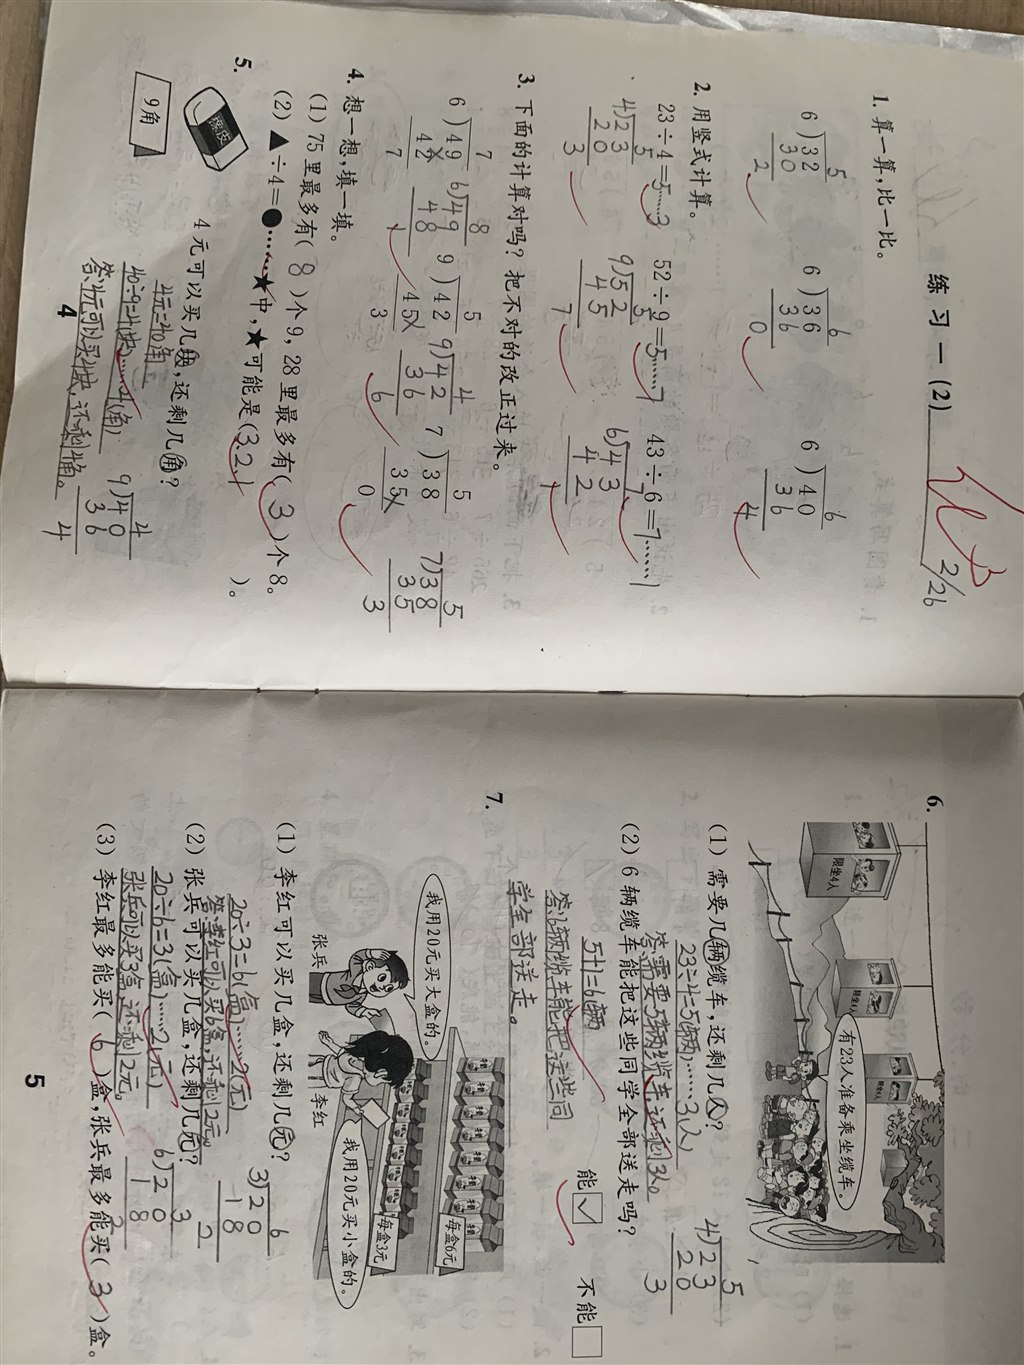 练 习 一 (2)
2/26
1. 算一算，比一比。
5
6)32
30
2
6
6)36
36
0
6
6)40
36
4
2. 用竖式计算。
23÷4=5……3 52÷9=5……7 43÷6=7……1
5
4)23
20
3
5
9)52
45
7
7
6)43
42
1
3. 下面的计算对吗？把不对的改正过来。
7
6)49
42
7
8
6)49
48
1
5
9)42
45
3
4
9)42
36
6
5
7)38
35
0
5
7)38
35
3
4. 想一想，填一填。
(1) 75里最多有( 8 )个9，28里最多有( 3 )个8。
(2) ▲÷4=●……★中，★可能是(3,2,1 )。
5.
橡皮
9角
4元可以买几块，还剩几角？
4元=40角
40÷9=4(块)……4(角)
答：4元可以买4块，还剩4角。
4
9)40
36
4
4
6.
限坐4人
限坐4人
限坐4人
有23人准备乘坐缆车。
(1) 需要几辆缆车，还剩几人？
23÷4=5(辆)……3(人)
答：需要5辆缆车，还剩3人。
5
4)23
20
3
(2) 6辆缆车能把这些同学全部送走吗？
能 ✓ 不能
5+1=6辆
答：6辆缆车能把这些同
学全部送走。
7.
我用20元买大盒的。
张兵
李红
我用20元买小盒的。
每盒6元
每盒3元
(1) 李红可以买几盒，还剩几元？
20÷3=6(盒)……2(元)
答：李红可以买6盒，还剩2元。
6
3)20
18
2
(2) 张兵可以买几盒，还剩几元？
20÷6=3(盒)……2(元)
张兵可以买3盒，还剩2元。
3
6)20
18
2
(3) 李红最多能买( 6 )盒，张兵最多能买( 3 )盒。
5